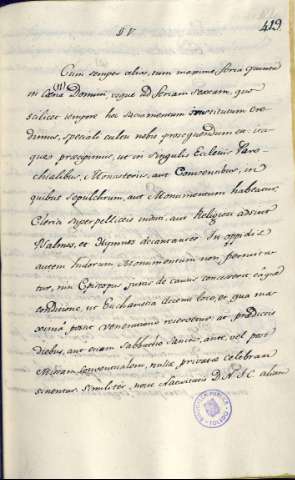 § V
419
Cum semper alias, tum maxime Feria quinta
(11)
in Cœna Domini, usque ad Feriam sextam, quo
scilicet tempore hoc Sacramentum institutum cre-
dimus, speciali cultu nobis prosequendum est; ita-
que præcipimus, ut in singulis Ecclesiis Paro-
chialibus, Monasteriis, aut Conventibus, in
quibus sepulchrum, aut Monumentum habeatur,
Clerici superpelliceis induti, aut Religiosi adsint
Psalmos, et Hymnos decantantes. In oppidis
autem Indorum Monumentum non permitta-
tur, nisi Episcopus justis de causis concesserit eâque
conditione, ut Eucharistia decenti loco, et qua ma-
ximâ potest veneratione reservetur, at prædictis
diebus, aut etiam Sabbatho Sancto, ante, vel post
Missam conventualem, nullæ privatæ celebrari
sinentur. Similiter, nocte Nativitatis D.N.J.C. aliam
BIBLIOTECA PUBLICA
TOLEDO